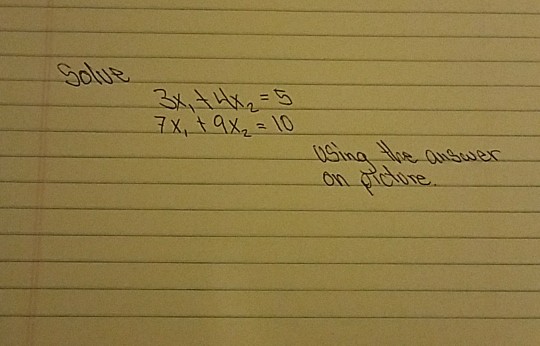 Solve
3x₁ + 4x₂ = 5
7x₁ + 9x₂ = 10
using the answer
on picture.